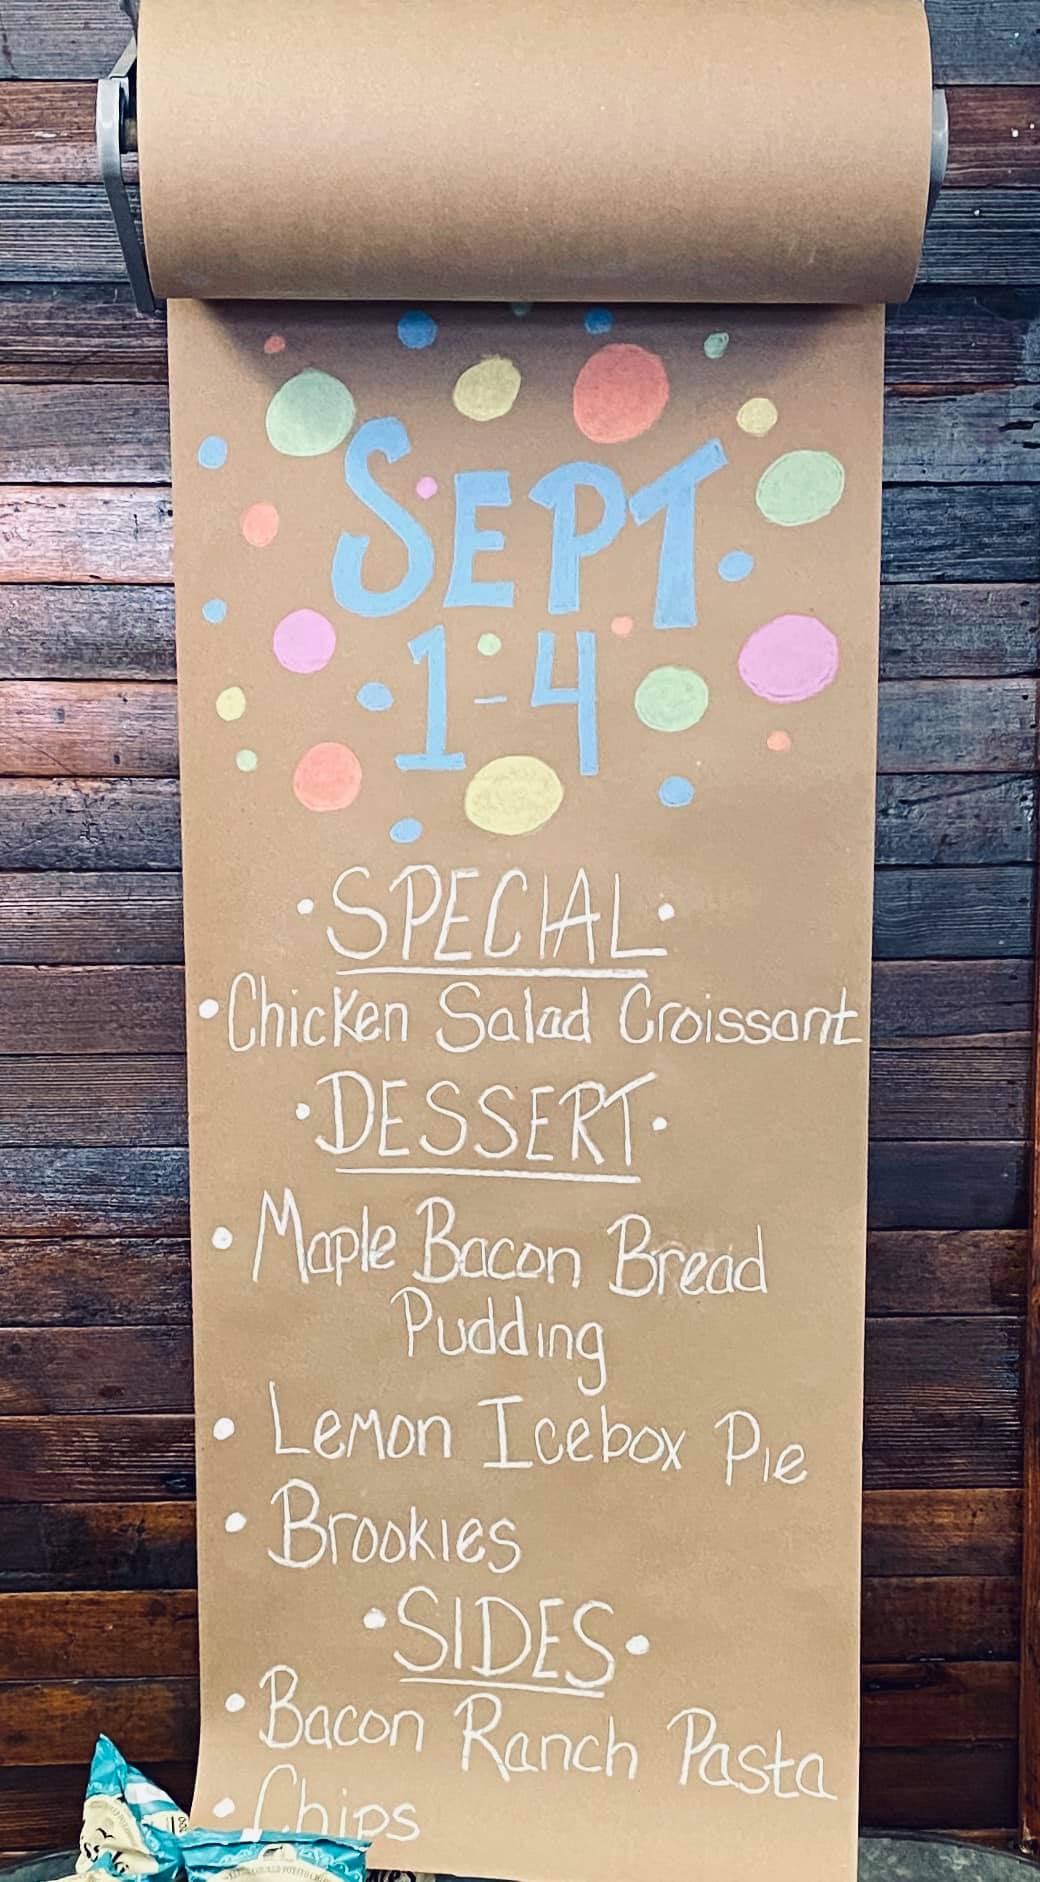 SEPT.
1-4
•SPECIAL•
•Chicken Salad Croissant
•DESSERT•
• Maple Bacon Bread
Pudding
• Lemon Icebox Pie
• Brookies
•SIDES•
•Bacon Ranch Pasta
•Chips